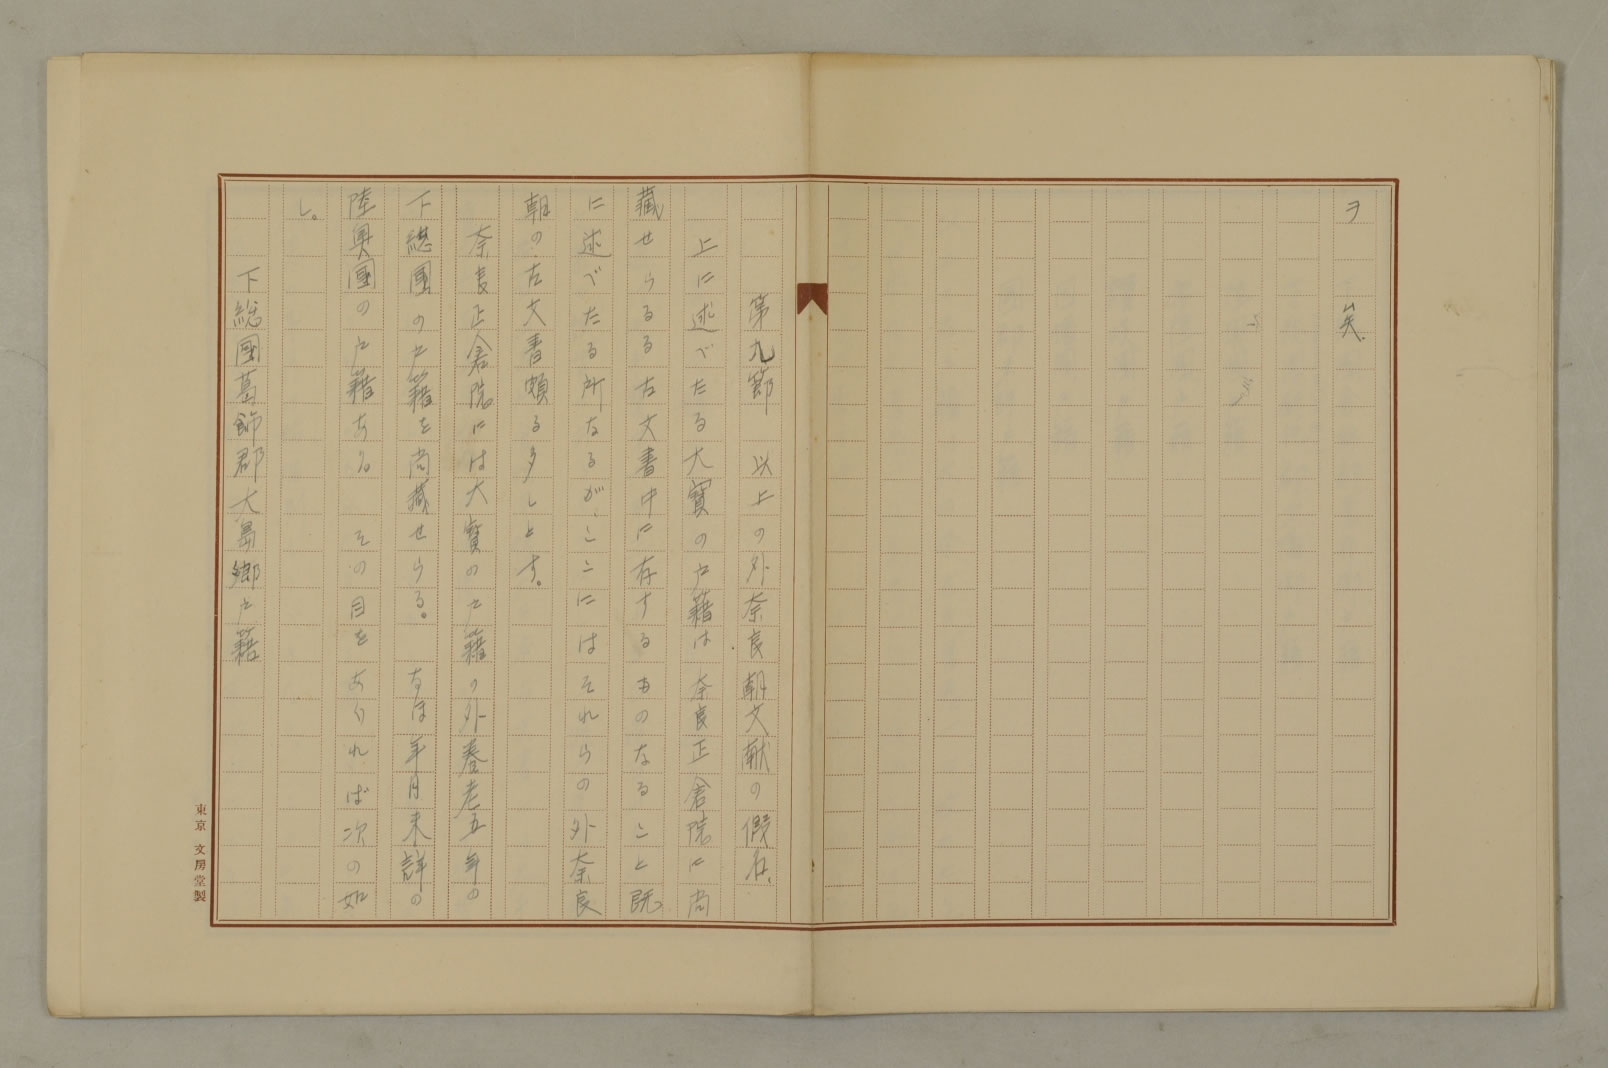 ヲ
第九節　以上の外奈良朝文献の假名。
上に述べたる大寶の戸籍は奈良正倉院に尚
藏せらるる古文書中に存するものなること既
に述べたる所なるが、ここにはそれらの外奈良
朝の古文書頗る多しとす。
奈良正倉院には大寶の戸籍の外養老五年の
下總國の戸籍を尚藏せらる。　なほ年月未詳の
陸奥國の戸籍あり　その目をあぐれば次の如
し。
下総國葛飾郡大島郷戸籍
東京　文房堂製